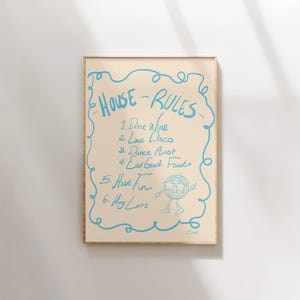 HOUSE - RULES -
1. Drink Wine
2. Live Disco
3. Dance First
4. Eat Good Food
5. Have Fun
6. Hug Lots